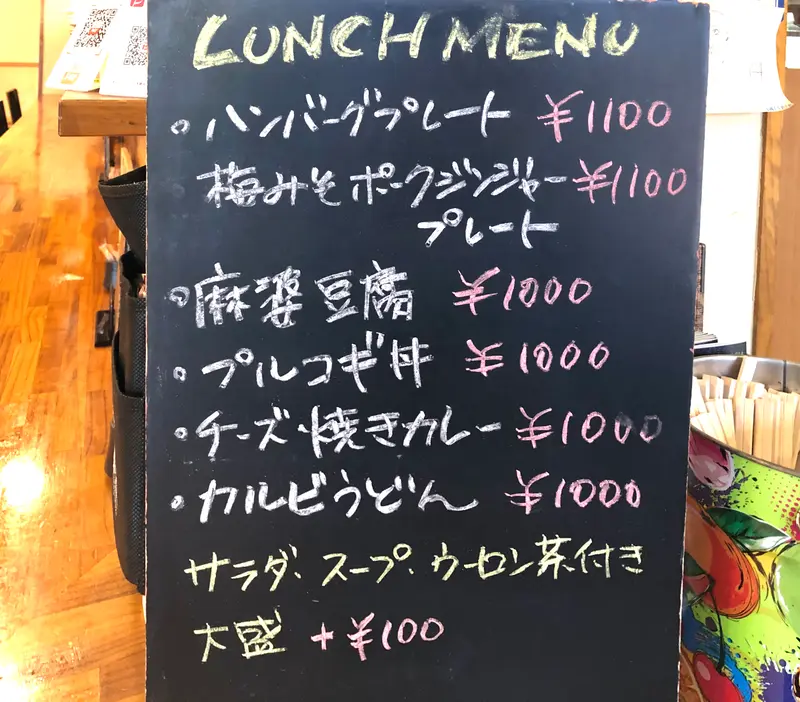 LUNCH MENU
・ハンバーグプレート ¥1100
梅みそポークジンジャー ¥1100
プレート
・麻婆豆腐 ¥1000
・プルコギ丼 ¥1000
・チーズ焼きカレー ¥1000
・カルビうどん ¥1000
サラダ、スープ、ウーロン茶付き
大盛 +¥100